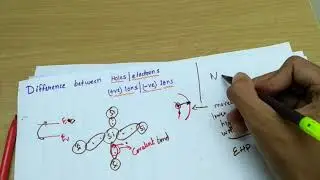 Difference between Holes | electrons
(+ve) Ions | (-ve) Ions
N
Ec
Ev
Si
Si
Si
Si
Covalent bond
EHP